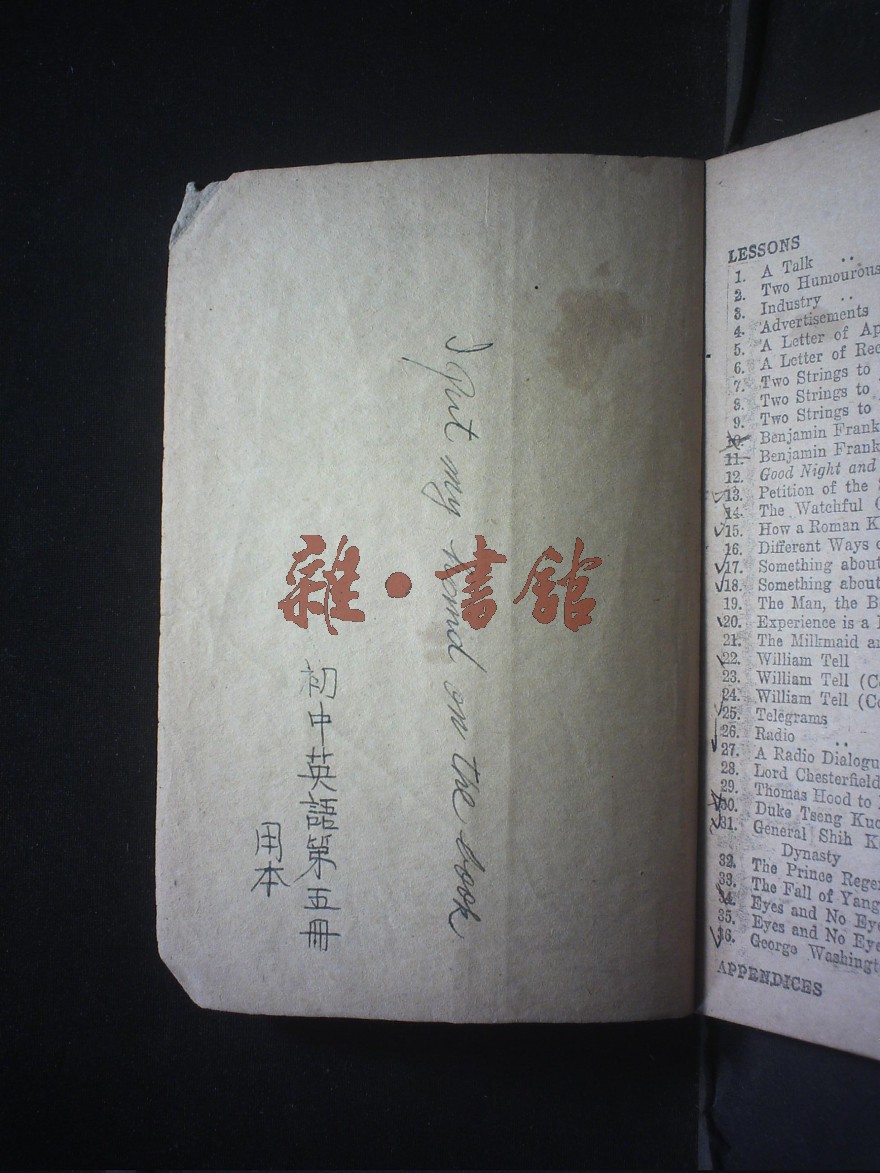 I put my hand on the book
初中英語第五冊
用本
雜·書館
LESSONS
1. A Talk ..
2. Two Humourous
3. Industry ..
4. Advertisements
5. A Letter of Ap
6. A Letter of Rec
7. Two Strings to
8. Two Strings to
9. Two Strings to
10. Benjamin Frank
11. Benjamin Frank
12. Good Night and
13. Petition of the
14. The Watchful
15. How a Roman K
16. Different Ways o
17. Something about
18. Something about
19. The Man, the B
20. Experience is a
21. The Milkmaid an
22. William Tell
23. William Tell (Co
24. William Tell (Co
25. Telegrams
26. Radio ..
27. A Radio Dialogu
28. Lord Chesterfield
29. Thomas Hood to
30. Duke Tseng Kuo
31. General Shih K
Dynasty
32. The Prince Rege
33. The Fall of Yang
34. Eyes and No Eye
35. Eyes and No Eye
36. George Washingt
APPENDICES